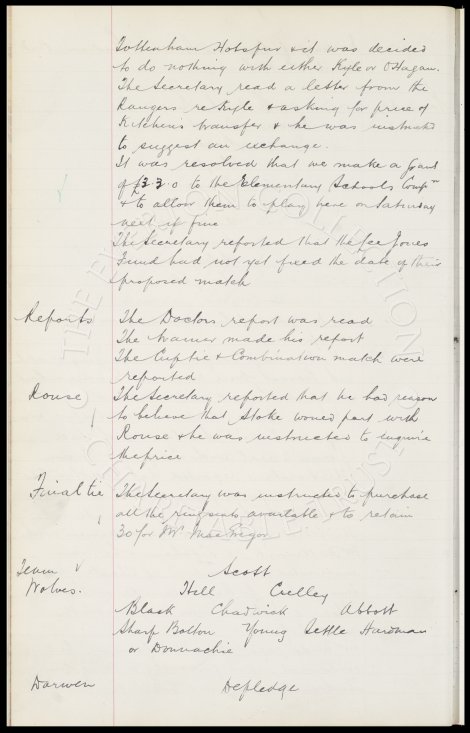 Tottenham Hotspur & it was decided
to do nothing with either Kyle or O'Hagan.
The Secretary read a letter from the
Rangers re Kyle & asking for price of
Kitchens transfer & he was instructed
to suggest an exchange.
It was resolved that we make a Grant
of £3.3.0 to the Elementary Schools Comp
& to allow them to play here on Saturday
next if fine
The Secretary reported that the Lee Jones
Fund had not yet fixed the date of their
proposed match
Reports The Doctors report was read
The trainer made his report
The Cuptie & Combination match were
reported
Rouse The Secretary reported that he had reason
to believe that Stoke would part with
Rouse & he was instructed to enquire
the price
Final tie The Secretary was instructed to purchase
all the ring seats available & to retain
30 for Mr MacGregor
Team v Scott
Wolves. Hill Crelley
Black Chadwick Abbott
Sharp Bolton Young Settle Hardman
or Donnachie
Darwen Depledge